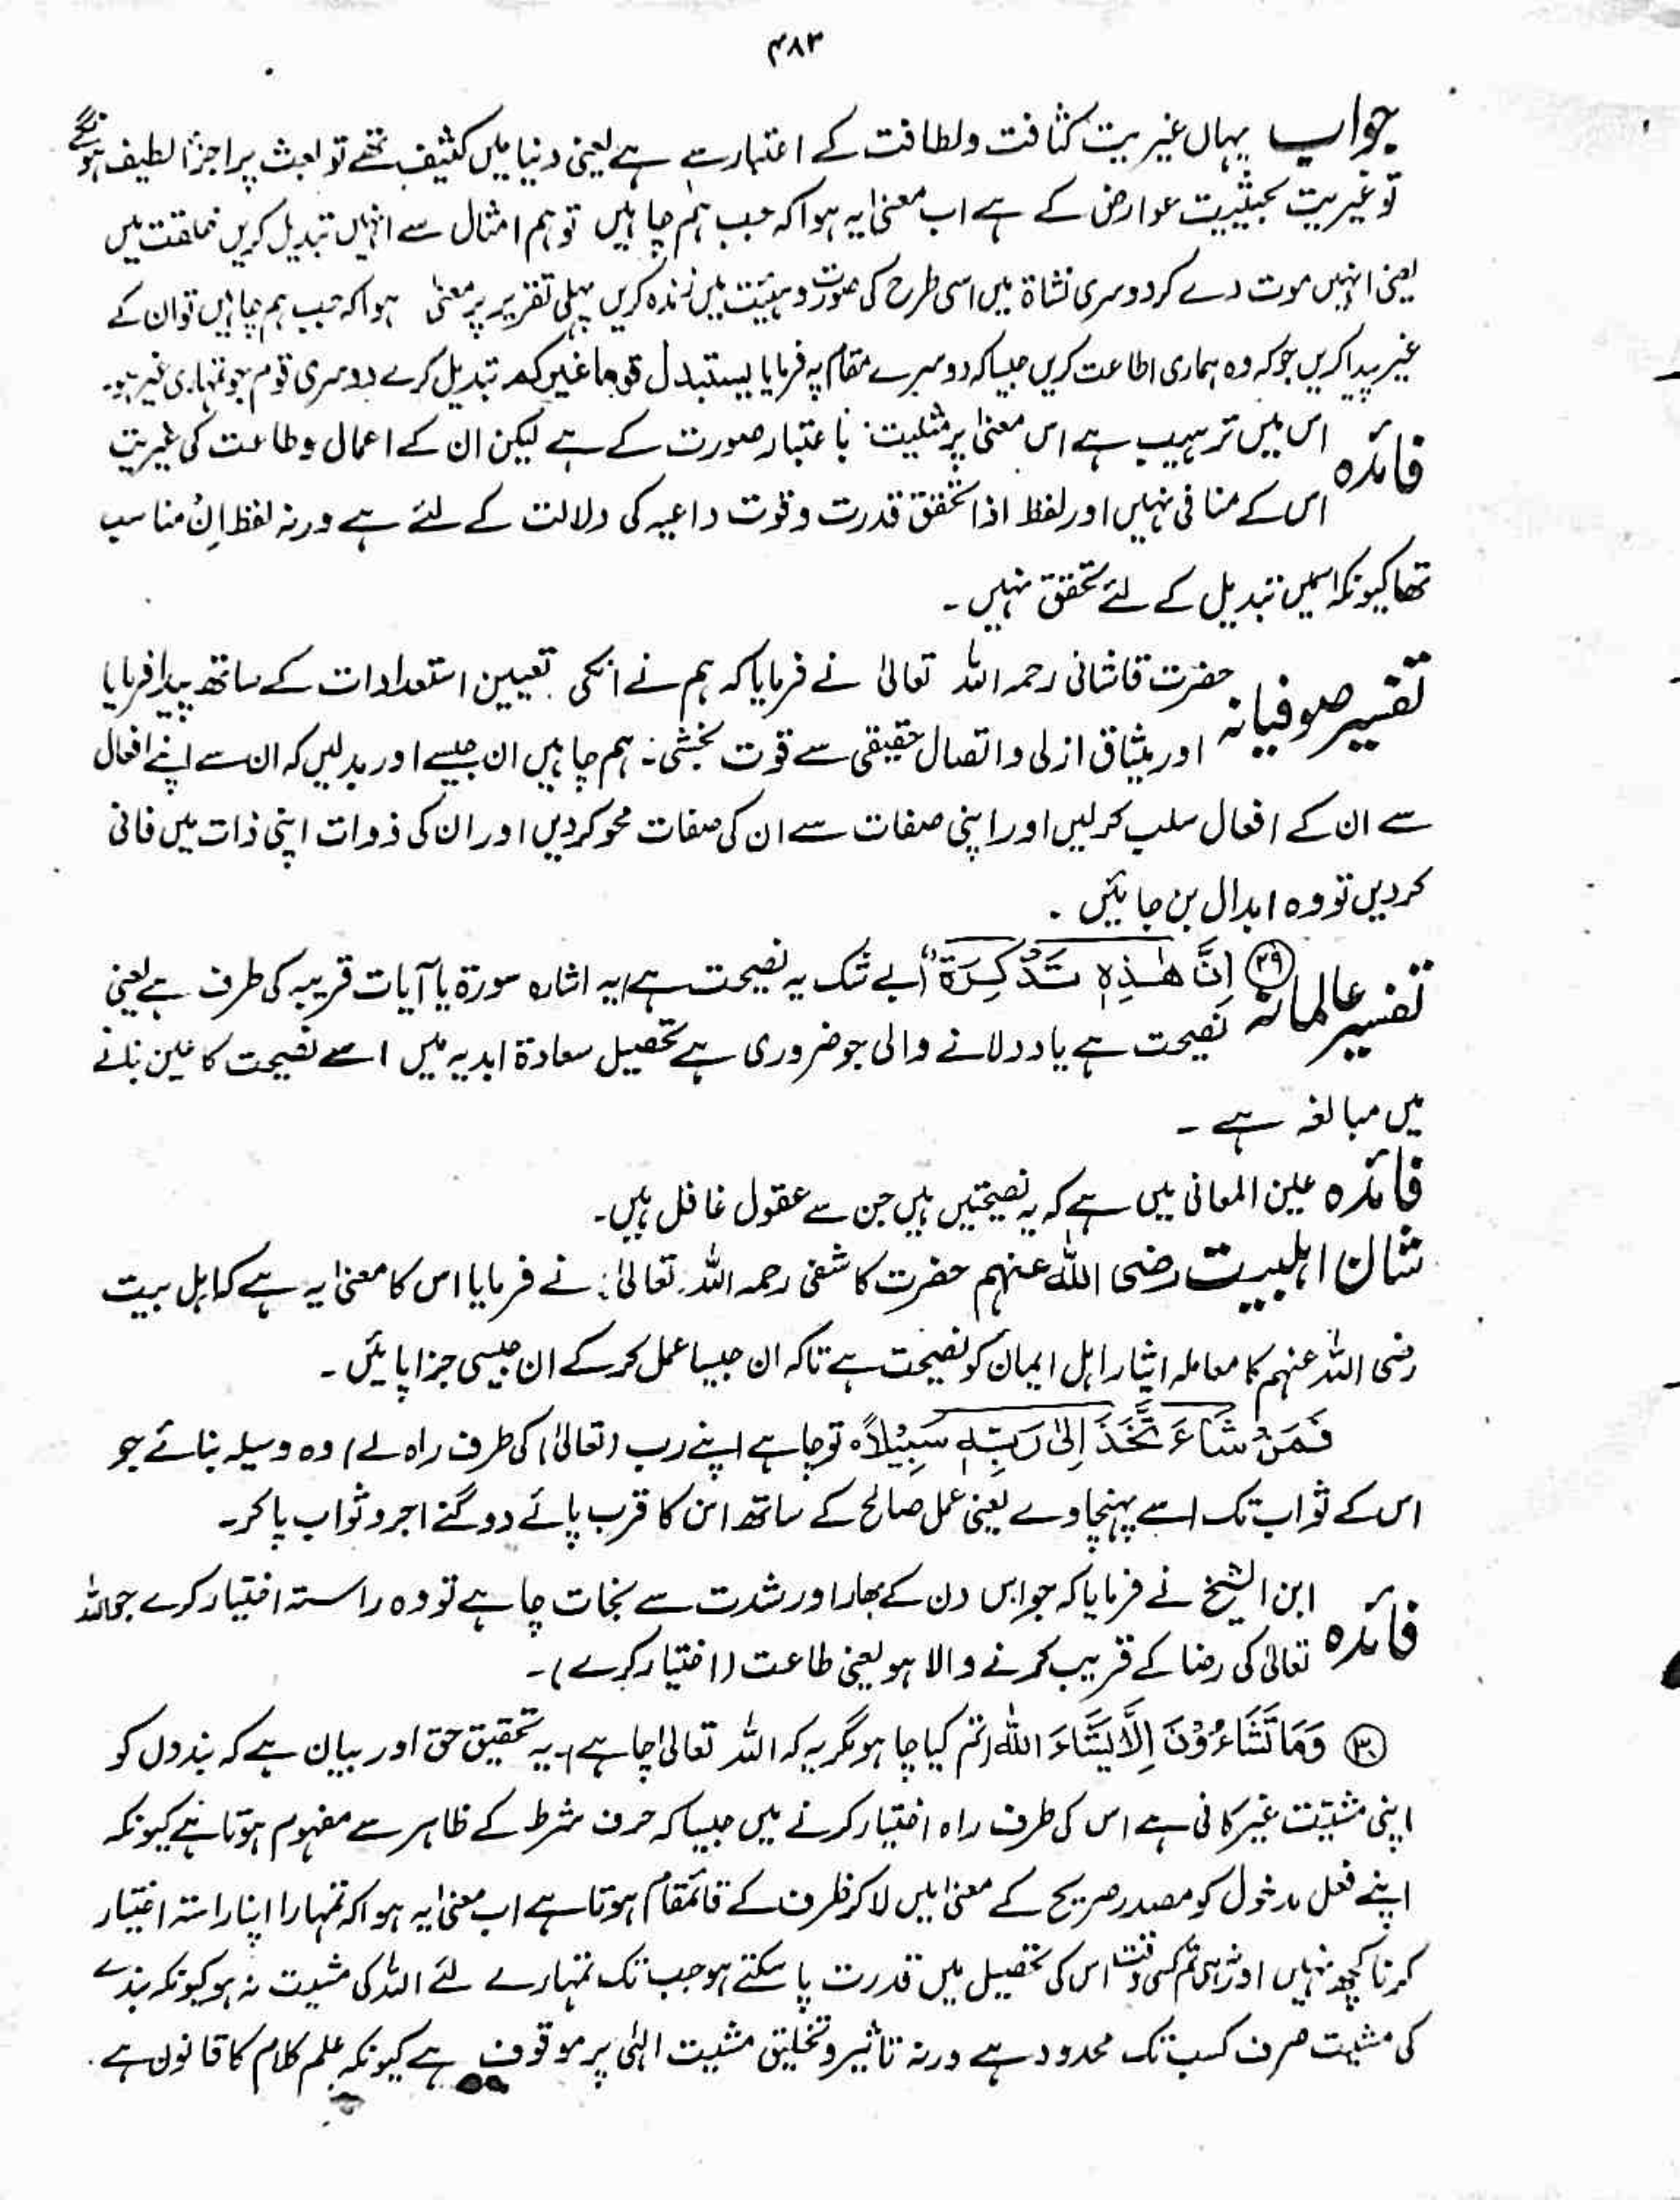 ۴۸۳
جواب یہاں غیریت کثافت ولطافت کے اعتبار سے ہے یعنی دنیا میں کثیف تھے تو بعث پر اجزا لطیف ہونگے
تو غیریت بحیثیت عوارض کے ہے اب معنیٰ یہ ہوا کہ جب ہم چاہیں تو ہم امثال سے انہیں تبدیل کریں خلقت میں
یعنی انہیں موت دے کر دوسری نشاۃ میں اسی طرح کی صورت و ہیئت میں زندہ کریں پہلی تقریر پر معنیٰ ہوا کہ جب ہم چاہیں تو ان کے
غیر پیدا کریں جو کہ وہ ہماری اطاعت کریں جیسا کہ دوسرے مقام پہ فرمایا یستبدل قوما غیرکم تبدیل کرے دوسری قوم جو تمہاری غیر ہو۔
فائدہ اس میں ترہیب ہے اس معنیٰ پر مثلیت باعتبار صورت کے ہے لیکن ان کے اعمال و طاعت کی غیریت
اس کے منافی نہیں اور لفظ اذا تحقق قدرت و قوت داعیہ کی دلالت کے لئے ہے ورنہ لفظ اِنْ مناسب
تھا کیونکہ اسمیں تبدیل کے لئے تحقق نہیں ۔
تفسیر صوفیانہ حضرت قاشانی رحمہ اللہ تعالیٰ نے فرمایا کہ ہم نے انکی تعیین استعدادات کے ساتھ پیدا فرمایا
اور میثاق ازلی و اتصال حقیقی سے قوت بخشی ۔ ہم چاہیں ان جیسے اور بدلیں کہ ان سے اپنے افعال
سے ان کے افعال سلب کرلیں اور اپنی صفات سے ان کی صفات محو کردیں اور ان کی ذوات اپنی ذات میں فانی
کردیں تو وہ ابدال بن جائیں ۔
تفسیر عالمانہ ㉙ اِنَّ هٰذِهٖ تَذْكِرَةٌ (بے شک یہ نصیحت ہے) یہ اشارہ سورۃ یا آیات قریبہ کی طرف ہے یعنی
نصیحت ہے یاد دلانے والی جو ضروری ہے تحصیل سعادۃ ابدیہ میں اسے نصیحت کا عین بنانے
میں مبالغہ ہے ۔
فائدہ عین المعانی میں ہے کہ یہ نصیحتیں ہیں جن سے عقول غافل ہیں۔
شان اہلبیت رضی اللہ عنہم حضرت کاشفی رحمہ اللہ تعالیٰ نے فرمایا اس کا معنیٰ یہ ہے کہ اہل بیت
رضی اللہ عنہم کا معاملہ ایثار اہل ایمان کو نصیحت ہے تاکہ ان جیسا عمل کرکے ان جیسی جزا پائیں ۔
فَمَنْ شَاءَ تَّخَذَ اِلٰى رَبِّهٖ سَبِيْلًاه تو چاہے اپنے رب (تعالیٰ) کی طرف راہ لے) وہ وسیلہ بنائے جو
اس کے ثواب تک اسے پہنچاوے یعنی عمل صالح کے ساتھ اس کا قرب پائے دوگنے اجر و ثواب پا کر۔
فائدہ ابن الشیخ نے فرمایا کہ جو اس دن کے بھار اور شدت سے نجات چاہے تو وہ راستہ اختیار کرے جو اللہ
تعالیٰ کی رضا کے قریب کرنے والا ہو یعنی طاعت (اختیار کرے)۔
㉚ وَمَا تَشَاءُوْنَ اِلَّا يَشَاءَ اللّٰه (تم کیا چاہو مگر یہ کہ اللہ تعالیٰ چاہے) یہ تحقیق حق اور بیان ہے کہ بندوں کو
اپنی مشیّت غیر کافی ہے اس کی طرف راہ اختیار کرنے میں جیسا کہ حرف شرط کے ظاہر سے مفہوم ہوتا ہے کیونکہ
اپنے فعل مدخول کو مصدر صریح کے معنیٰ میں لاکر ظرف کے قائمقام ہوتا ہے اب معنیٰ یہ ہوا کہ تمہارا اپنا راستہ اختیار
کرنا کچھ نہیں اور نہ ہی تم کسی وقت اس کی تحصیل میں قدرت پا سکتے ہو جب تک تمہارے لئے اللہ کی مشیت نہ ہو کیونکہ بندے
کی مشیت صرف کسب تک محدود ہے ورنہ تاثیر و تخلیق مشیت الٰہی پر موقوف ہے کیونکہ علم کلام کا قانون ہے ۔